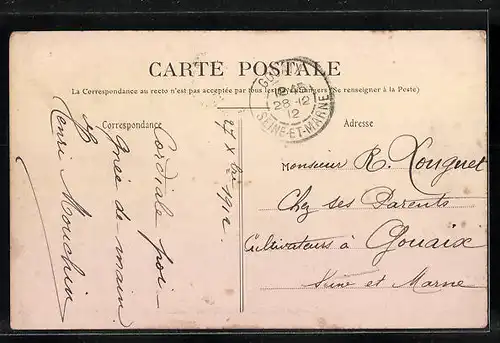 CARTE POSTALE
La Correspondance au recto n'est pas acceptée par tous les pays étrangers (Se renseigner à la Poste)
Correspondance
Adresse
12
28-12
12
SEINE-ET-MARNE
27 Xbre 1912
Cordiale poi-
gnée de main
Henri Mouchin
Monsieur R. Rouguet
Chez ses Parents
Cultivateurs à Gouaix
Seine et Marne